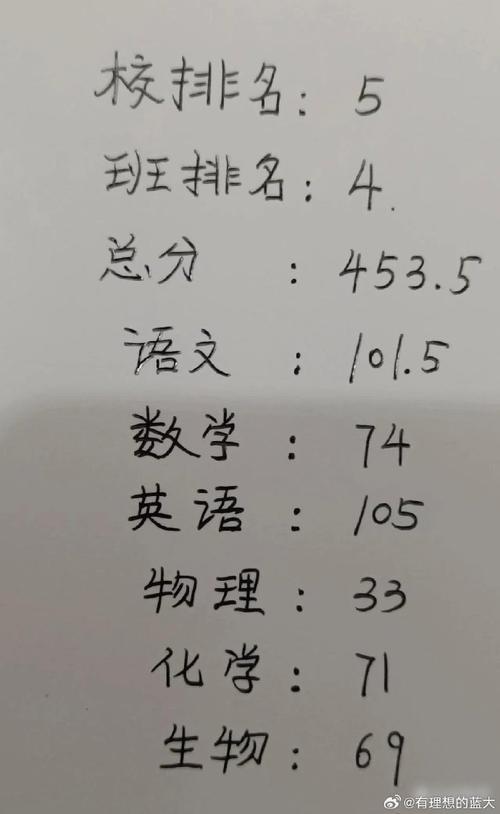 校排名: 5
班排名: 4.
总分 : 453.5
语文 : 101.5
数学 : 74
英语 : 105
物理 : 33
化学 : 71
生物 : 69
@有理想的蓝大